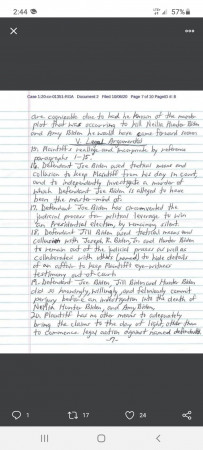 2:44
57%
Case 1:20-cv-01391-RGA Document 2 Filed Page 7 of 10 PageID #: 8
are cognizable due to had he known of the murder
plot that was occurring to kill Neilia Hunter Biden
and Amy Biden he would have came forward sooner.
V. Legal Arguments
15. Plaintiff's realleges and incorporate by reference
paragraphs 1-15.
16. Defendant Joe Biden used tactical means and
collusion to keep Plaintiff from his day in court,
and to independently investigate a murder of
which Defendant Joe Biden is alleged to have
been the master-mind of.
17. Defendant Joe Biden has circumvented the
judicial process for political leverage to win
the Presidential election, by remaining silent.
18. Defendant Jill Biden used tactical means and
collusion with Joseph R. Biden, Jr. and Hunter Biden
to remain out of the judicial process as well as
collaborated with others (named) to hide details
of an affair to keep Plaintiff's eye-witness
testimony out of court.
19. Defendant Joe Biden, Jill Biden and Hunter Biden
did so knowingly, willingly, and feloniously commit
perjury before an investigation into the death of
Neilia Hunter Biden, and Amy Biden.
20. Plaintiff has no other means to adequately
bring the claims to the day of light, other than
to commence legal action against named defendants.
-7-
1
17
24